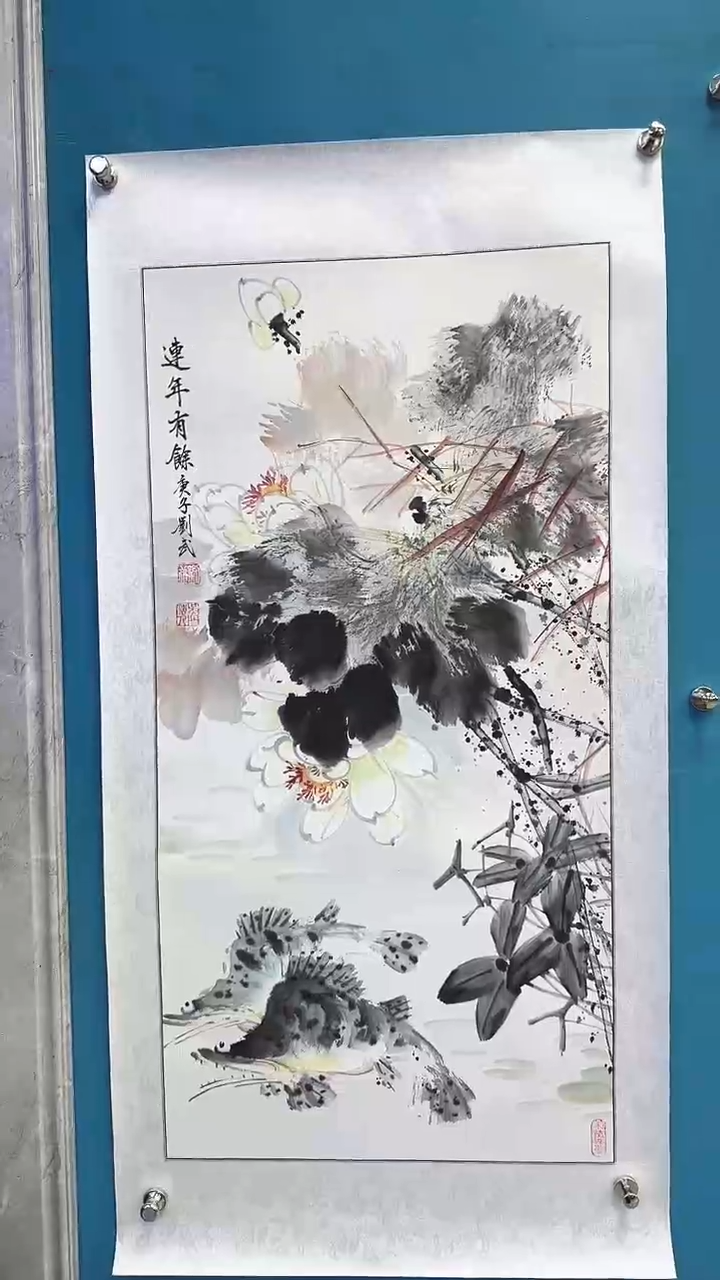 連年有餘
庚子劉武